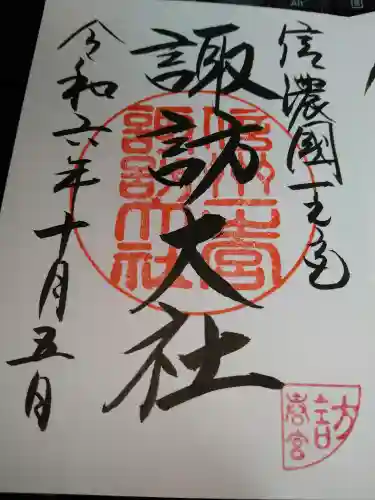 信濃國一之宮
諏訪大社
令和六年十月五日
信州一宮
諏訪大社